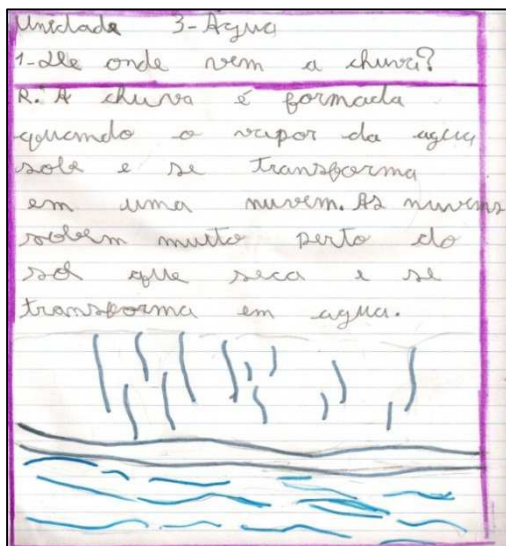 Unidade 3-Agua
1-De onde vem a chuva?
R: A chuva é formada
quando o vapor da agua
sobe e se transforma
em uma nuvem. As nuvens
sobem muito perto do
sol que seca e se
transforma em agua.